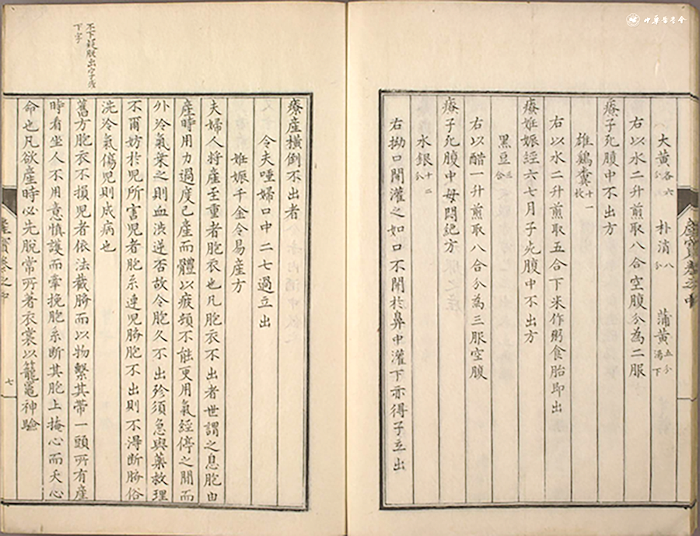 大黄各六分 朴消八分 蒲黄五分湯下
右以水二升煎取八合空腹分為二服
療子死腹中不出方
雄鷄糞十一枚
右以水二升煎取五合下米作粥食胎即出
療姙娠經六七月子死腹中不出方
黒豆三合
右以醋一升煎取八合分為三服空腹
療子死腹中母悶絶方
水銀十二分
右拗口開灌之如口不開於鼻中灌下亦得子立出
療産横倒不出者
令夫唾婦口中二七過立出
姙娠千金令易産方
夫婦人将産至重者胞衣也凡胞衣不出者世謂之息胞由
產時用力過度已產而體以疲頓不能更用氣經停之間而
外冷氣乗之則血澁逆否故令胞久不出殄須急與藥救理
不爾妨扵児所害児者胞系連児臍胞不出則不淂斷臍俗
洗冷氣傷児則成病也
舊方胞衣不損児者依法截臍而以物繫其帶一頭所有産
時看坐人不用意慎護而牽挽胞系断其胞上掩心而夭心
命也凡欲産時必先脱常所著衣裳以籠竈神驗
七
不下疑脱出字或
下字